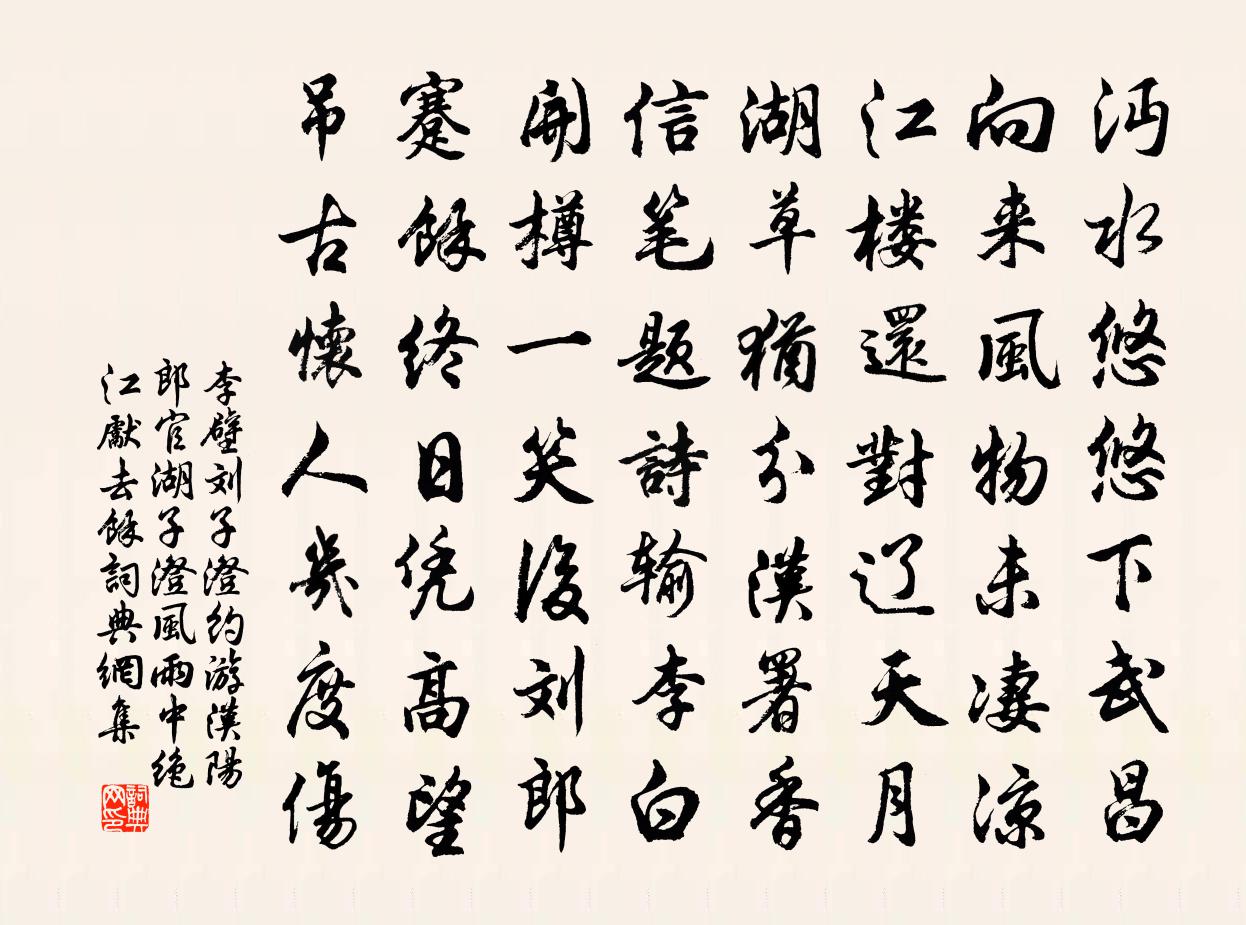 沔水悠悠下武昌
向来風物未凄凉
江楼還對辽天月
湖草猶分漢署香
信笔題詩输李白
開樽一笑後刘郎
蹇餘终日凭高望
吊古懷人幾度傷
李壁刘子澄约游漢陽
郎官湖子澄風雨中絶
江獻去餘詞典網集
詞典
网印